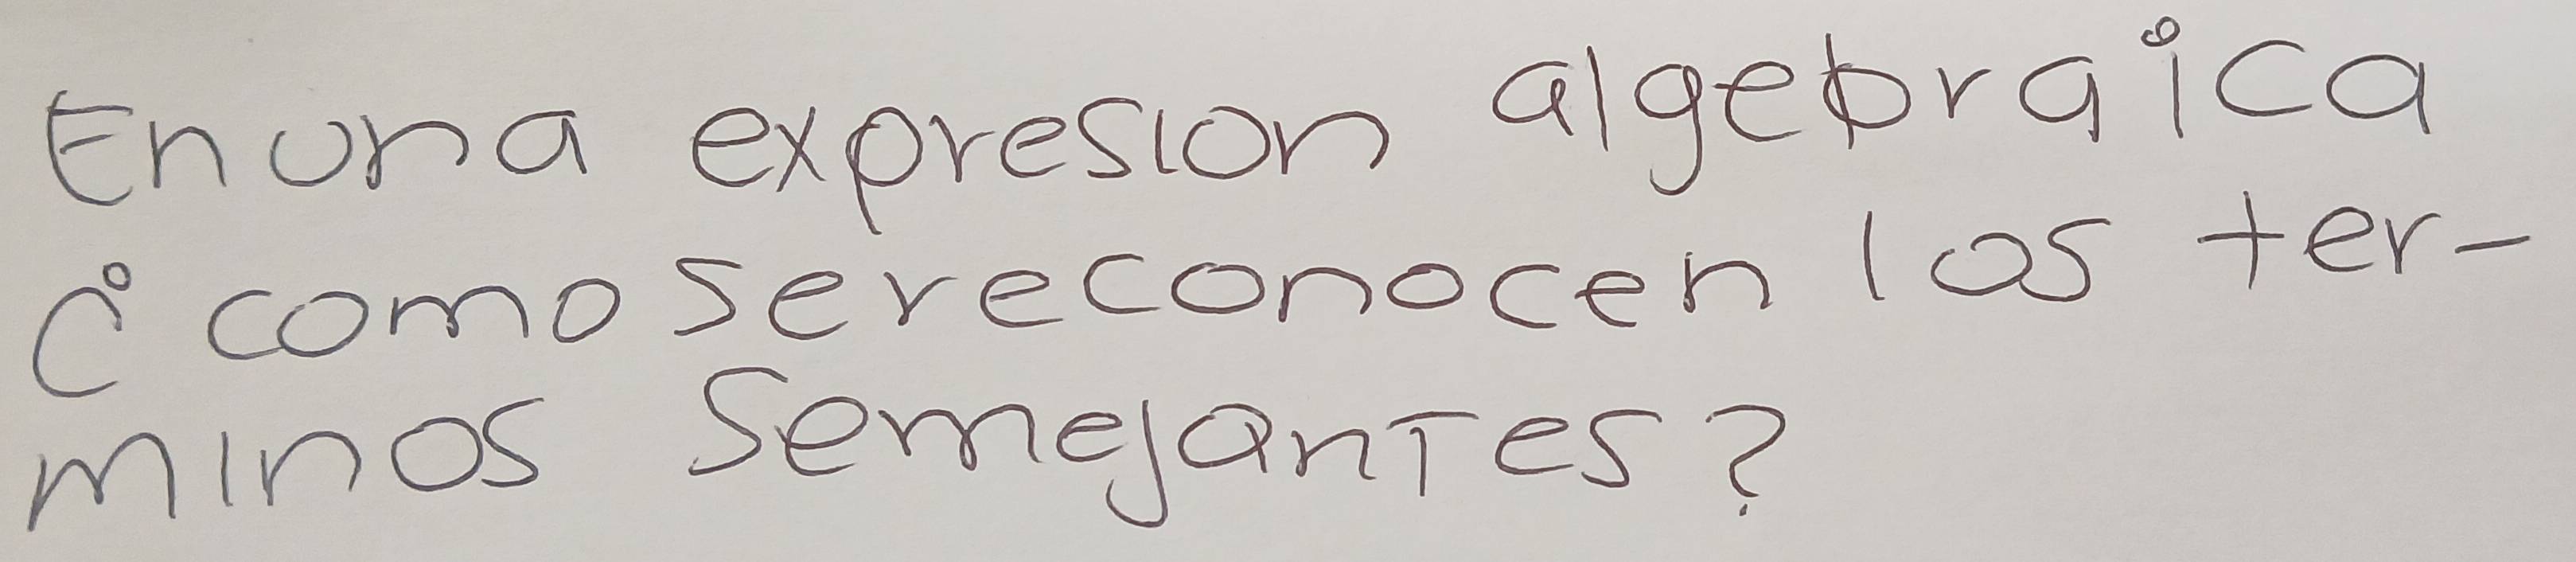 En una expresion algebraica
¿como se reconocen los ter-
minos semejantes?